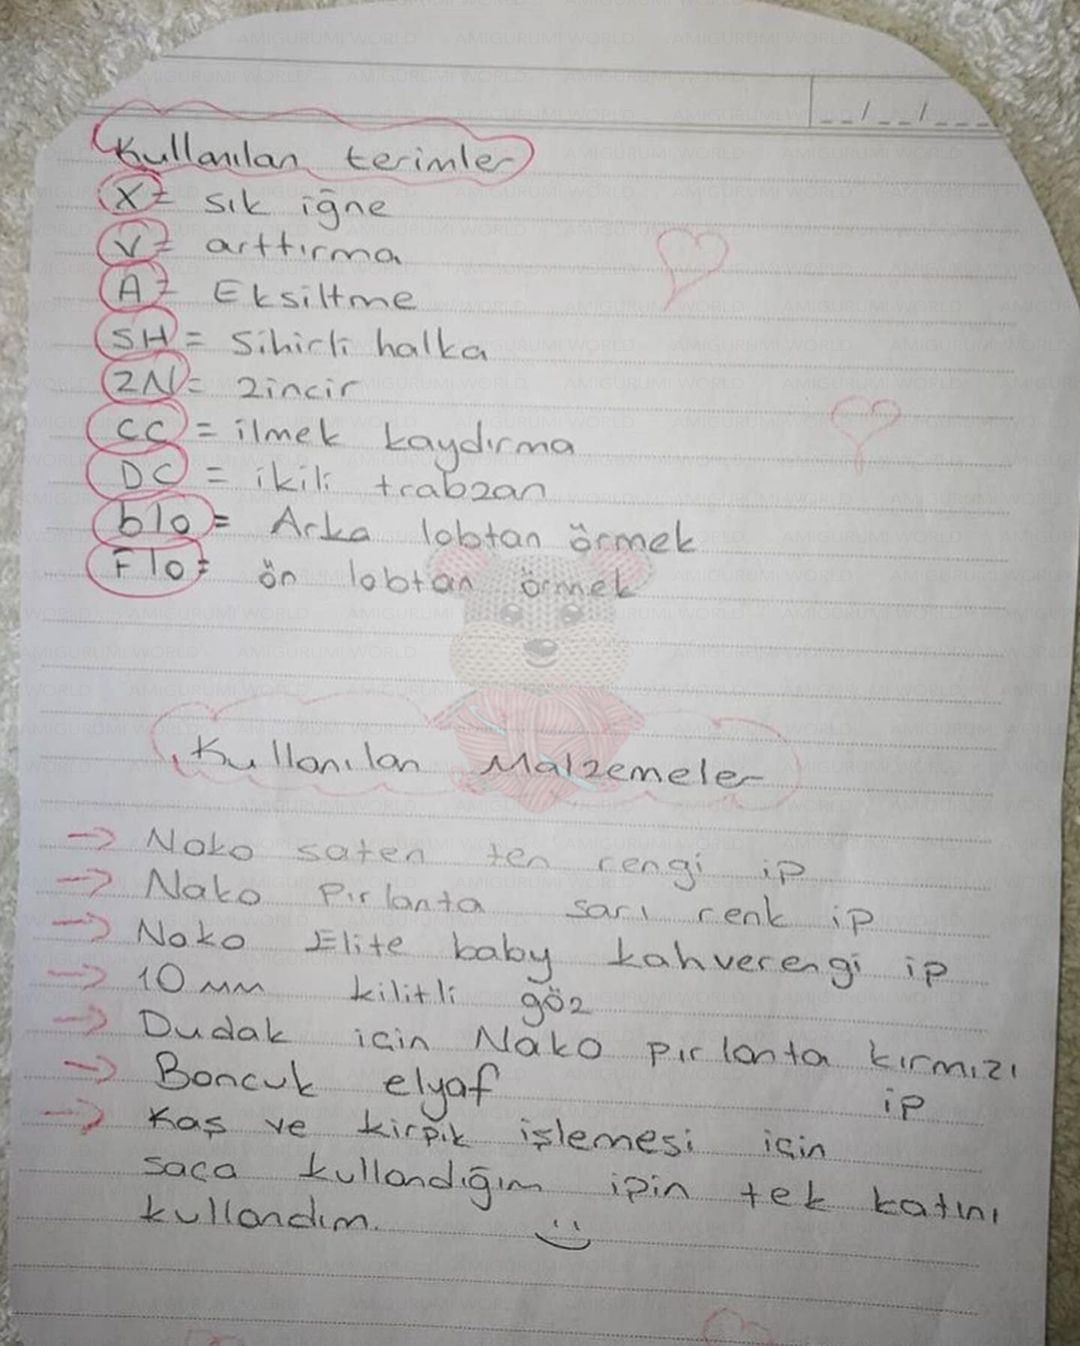 Kullanılan terimler
X = sık iğne
V = arttırma
A = Eksiltme
SH = Sihirli halka
ZN = Zincir
CC = ilmek kaydırma
DC = ikili trabzan
blo = Arka lobtan örmek
Flo = ön lobtan örmek
Kullanılan Malzemeler
→ Nako saten ten rengi ip
→ Nako Pırlanta sarı renk ip
→ Nako Elite baby kahverengi ip
→ 10 mm kilitli göz
→ Dudak için Nako pırlanta kırmızı
ip
→ Boncuk elyaf
→ Kaş ve kirpik işlemesi için
saça kullandığım ipin tek katını
kullandım. :)
AMIGURUMI WORLD